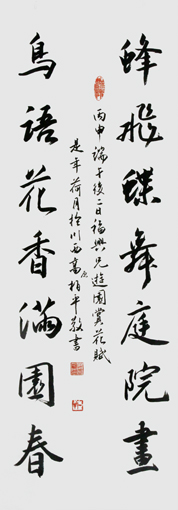 蜂飛蝶舞庭院畫
丙申端午後二日福興兄遊園賞花賦
是年荷月於川西高原柏年敬書
鳥語花香滿園春